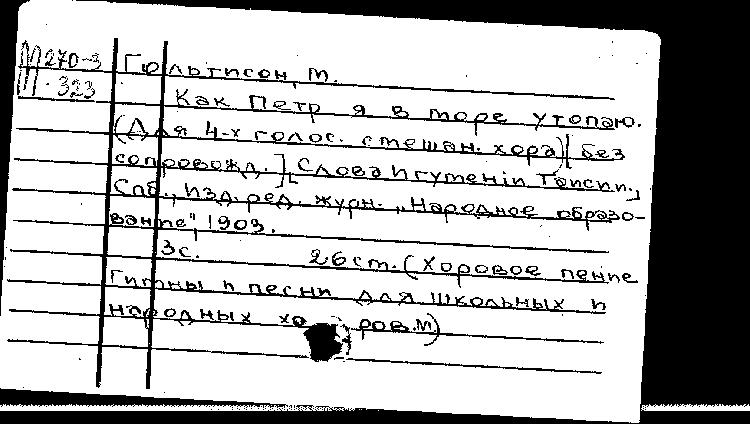 М270-3 Гюльтисон, М.
П.323
Как Петр я в море утопаю.
(Для 4-х голос. смешан. хора) [без
сопровожд.] [Слова Игумений Таисии.]
Спб., Изд. ред. журн. „Народное образо-
вание", 1903.
3с. 26 cm. (Хоровое пение
Гимны и песни для школьных и
народных хоров. М)